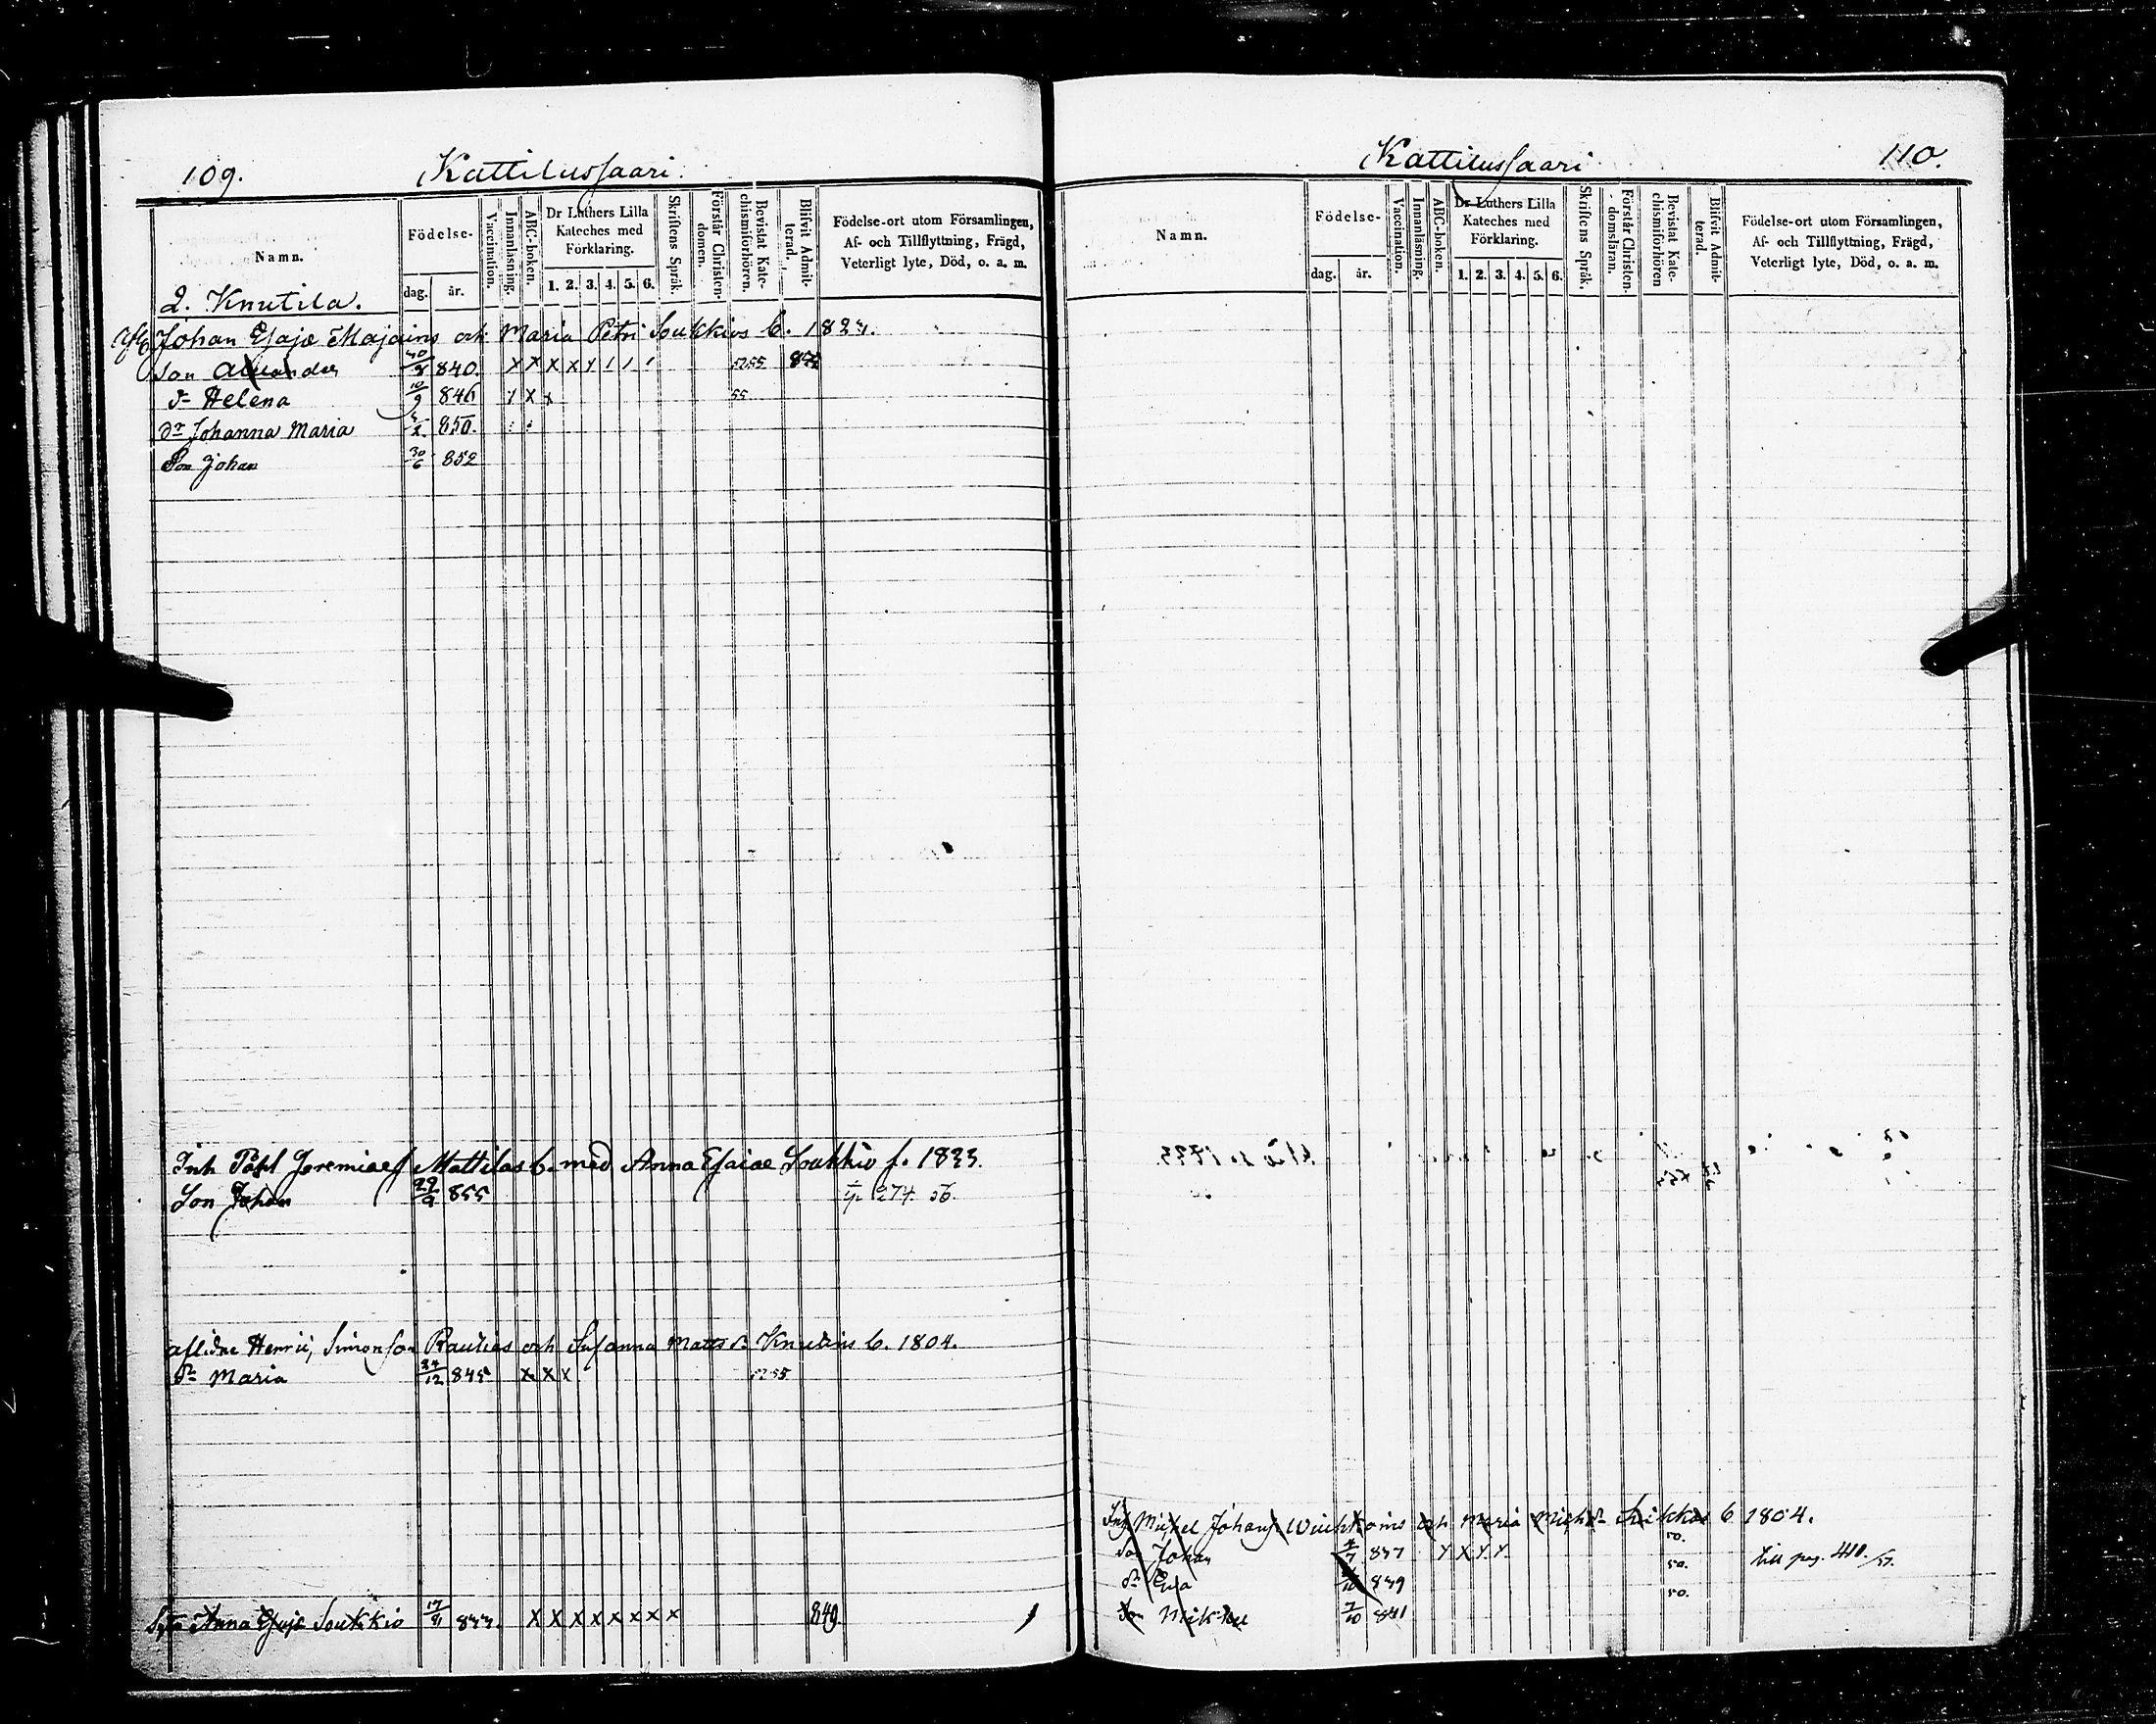 109.
Kattilussaari.
Namn.
Födelse-
dag.
år.
Vaccination.
Innanläsning.
ABC-boken.
Dr Luthers Lilla
Kateches med
Förklaring.
1. 2. 3. 4. 5. 6.
Skriftens Språk.
Förstår Christen-
domen.
Bevistat Kate-
chismiförhören.
Blifvit Admit-
terad.
Födelse-ort utom Församlingen,
Af- och Tillflyttning, Frägd,
Veterligt lyte, Död, o. a. m.
2. Knutila.
Johan Esajæ Majains och Maria Petri Soukkios b.
Son 840. x x x x 52.55
dr Helena 10/9 846 x x 55
dr Johanna Maria 850.
Son Johan 30/6 852
Inh Påhl Jeremiae Mattilas b. med Anna Esaiae Soukkio f. 1833.
Son Johan 29/9 855 274. 56.
Henric Simonson Raulias och Susanna Matts dr b. 1804.
dr Maria 24/12 845 x x x 52 55
Anna Soukkio 833. x x x x x x x x 849.
Kattilussaari
110.
Namn.
Födelse-
dag.
år.
Vaccination.
Innanläsning.
ABC-boken.
Dr Luthers Lilla
Kateches med
Förklaring.
1. 2. 3. 4. 5. 6.
Skriftens Språk.
Förstår Christen-
domsläran.
Bevistat Kate-
chismiförhören
Blifvit Admit-
terad.
Födelse-ort utom Församlingen,
Af- och Tillflyttning, Frägd,
Veterligt lyte, Död, o. a. m.
Mickel Johans och Maria Mich dr b 1804.
50.
Son Johan 4/7 837 x x x x 50. till pag. 410./57.
dr Eva 839 50.
Son Mikkel 7/10 841